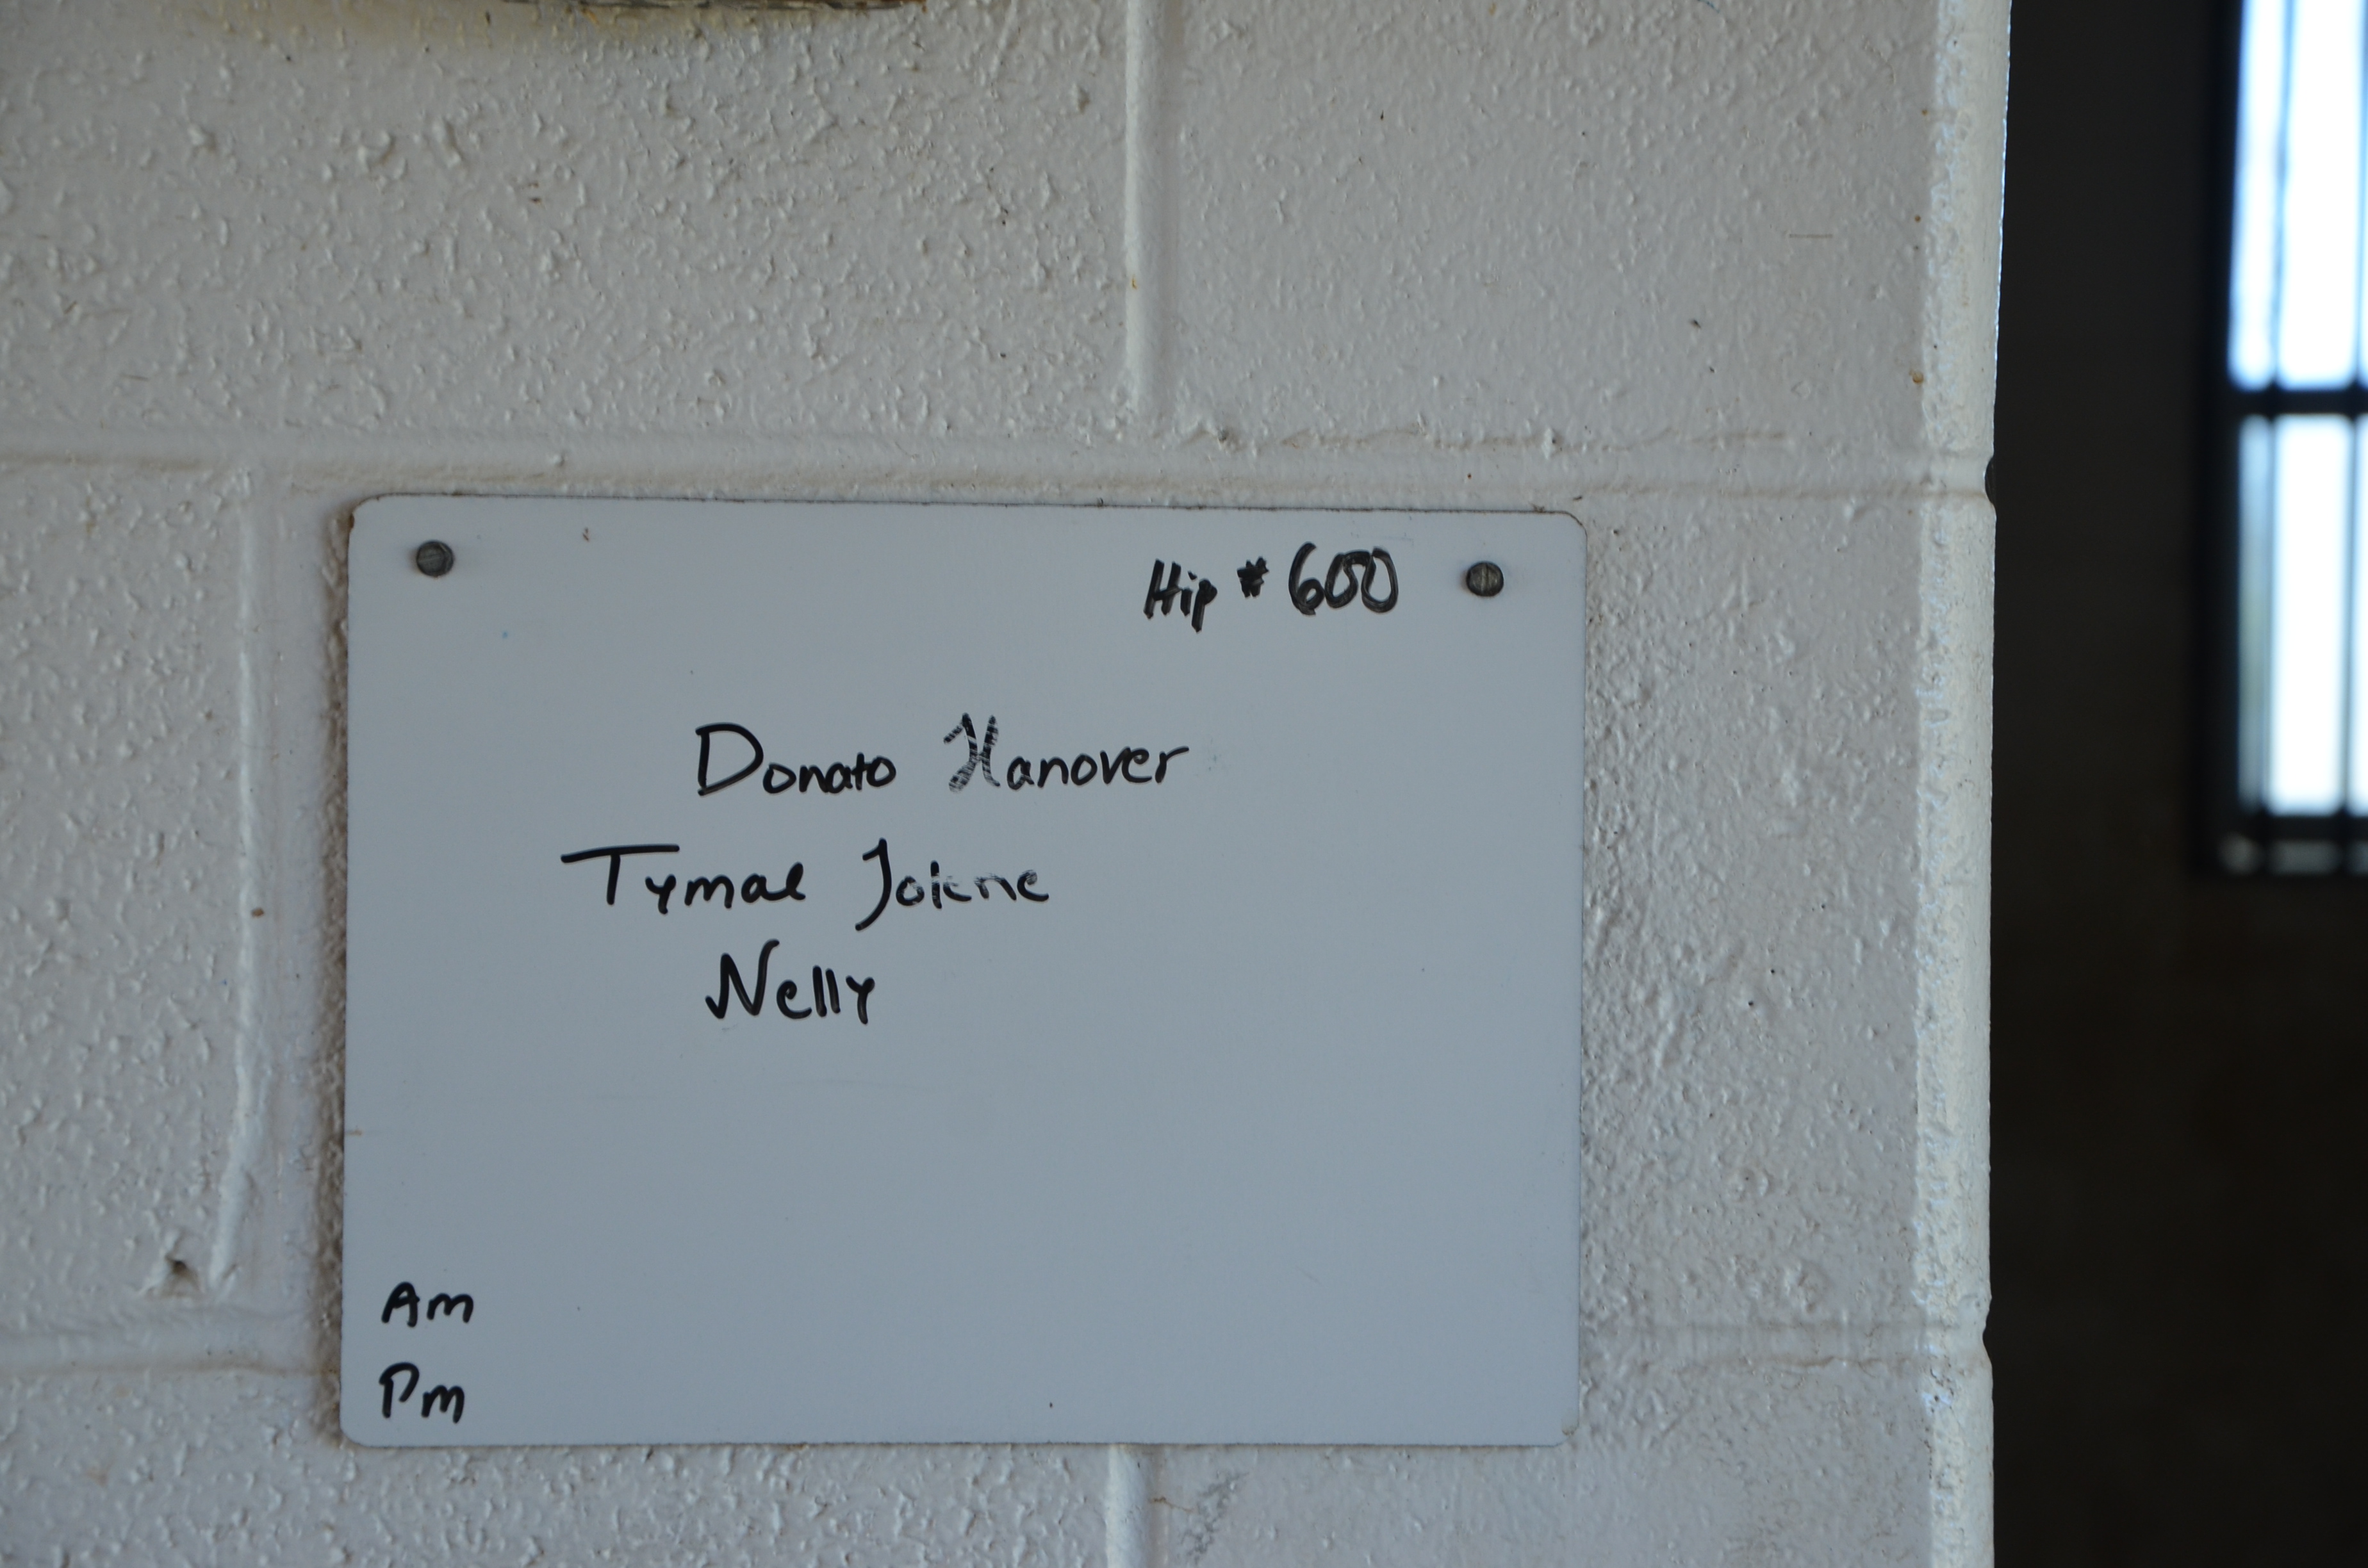 Hip # 600
Donato Hanover
Tymal Jolene
Nelly
Am
Pm